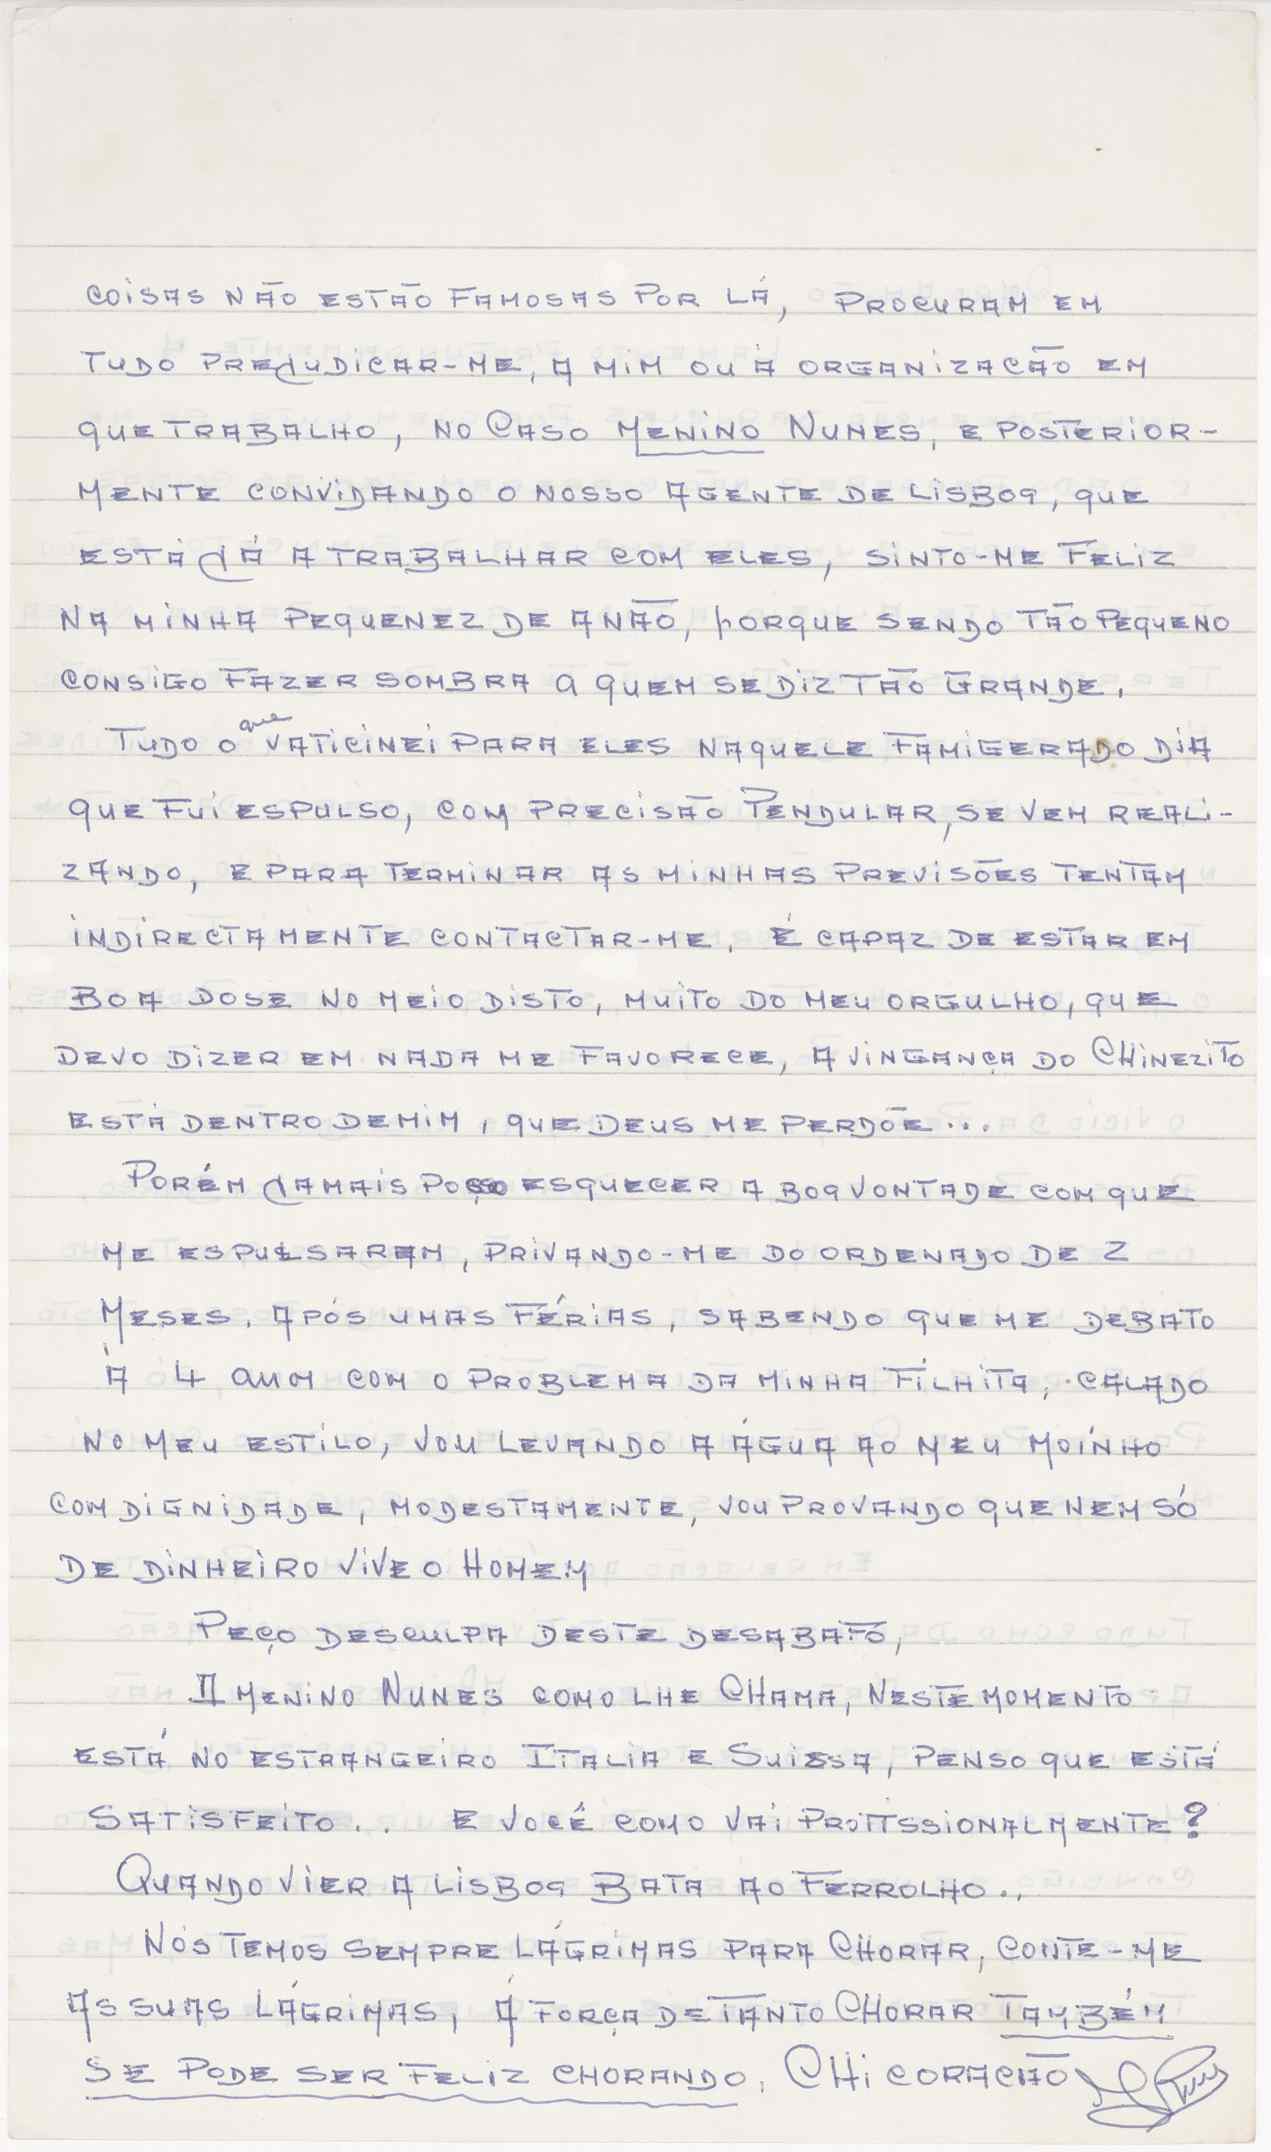 COISAS NÃO ESTÃO FAMOSAS POR LÁ, PROCURAM EM
TUDO PREJUDICAR-ME, A MIM OU À ORGANIZACÃO EM
QUE TRABALHO, NO CASO MENINO NUNES, E POSTERIOR-
MENTE CONVIDANDO O NOSSO AGENTE DE LISBOA, QUE
ESTÁ JÁ A TRABALHAR COM ELES, SINTO-ME FELIZ
NA MINHA PEQUENEZ DE ANÃO, PORQUE SENDO TÃO PEQUENO
CONSIGO FAZER SOMBRA A QUEM SE DIZ TÃO GRANDE.
TUDO O que VATICINEI PARA ELES NAQUELE FAMIGERADO DIA
QUE FUI ESPULSO, COM PRECISÃO PENDULAR, SE VEM REALI-
ZANDO, E PARA TERMINAR AS MINHAS PREVISÕES TENTAM
INDIRECTAMENTE CONTACTAR-ME. É CAPAZ DE ESTAR EM
BOA DOSE NO MEIO DISTO, MUITO DO MEU ORGULHO, QUE
DEVO DIZER EM NADA ME FAVORECE, A VINGANÇA DO CHINEZITO
ESTÁ DENTRO DE MIM, QUE DEUS ME PERDÕE...
PORÉM JAMAIS POSSO ESQUECER A BOA VONTADE COM QUE
ME ESPULSARAM, PRIVANDO-ME DO ORDENADO DE 2
MESES. APÓS UMAS FÉRIAS, SABENDO QUE ME DEBATO
À 4 ANOS COM O PROBLEMA DA MINHA FILHITA, CALADO
NO MEU ESTILO, VOU LEVANDO A ÁGUA AO MEU MOÍNHO
COM DIGNIDADE, MODESTAMENTE, VOU PROVANDO QUE NEM SÓ
DE DINHEIRO VIVE O HOMEM
PEÇO DESCULPA DESTE DESABAFO,
MENINO NUNES COMO LHE CHAMA, NESTE MOMENTO
ESTÁ NO ESTRANGEIRO ITALIA E SUISSA, PENSO QUE ESTÁ
SATISFEITO.. E VOCÊ COMO VAI PROFISSIONALMENTE?
QUANDO VIER A LISBOA BATA AO FERROLHO..
NÓS TEMOS SEMPRE LÁGRIMAS PARA CHORAR, CONTE-ME
AS SUAS LÁGRIMAS, Á FORÇA DE TANTO CHORAR TAMBÉM
SE PODE SER FELIZ CHORANDO. CHI CORACÃO